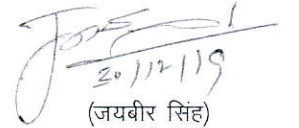 30/12/19
(जयबीर सिंह)